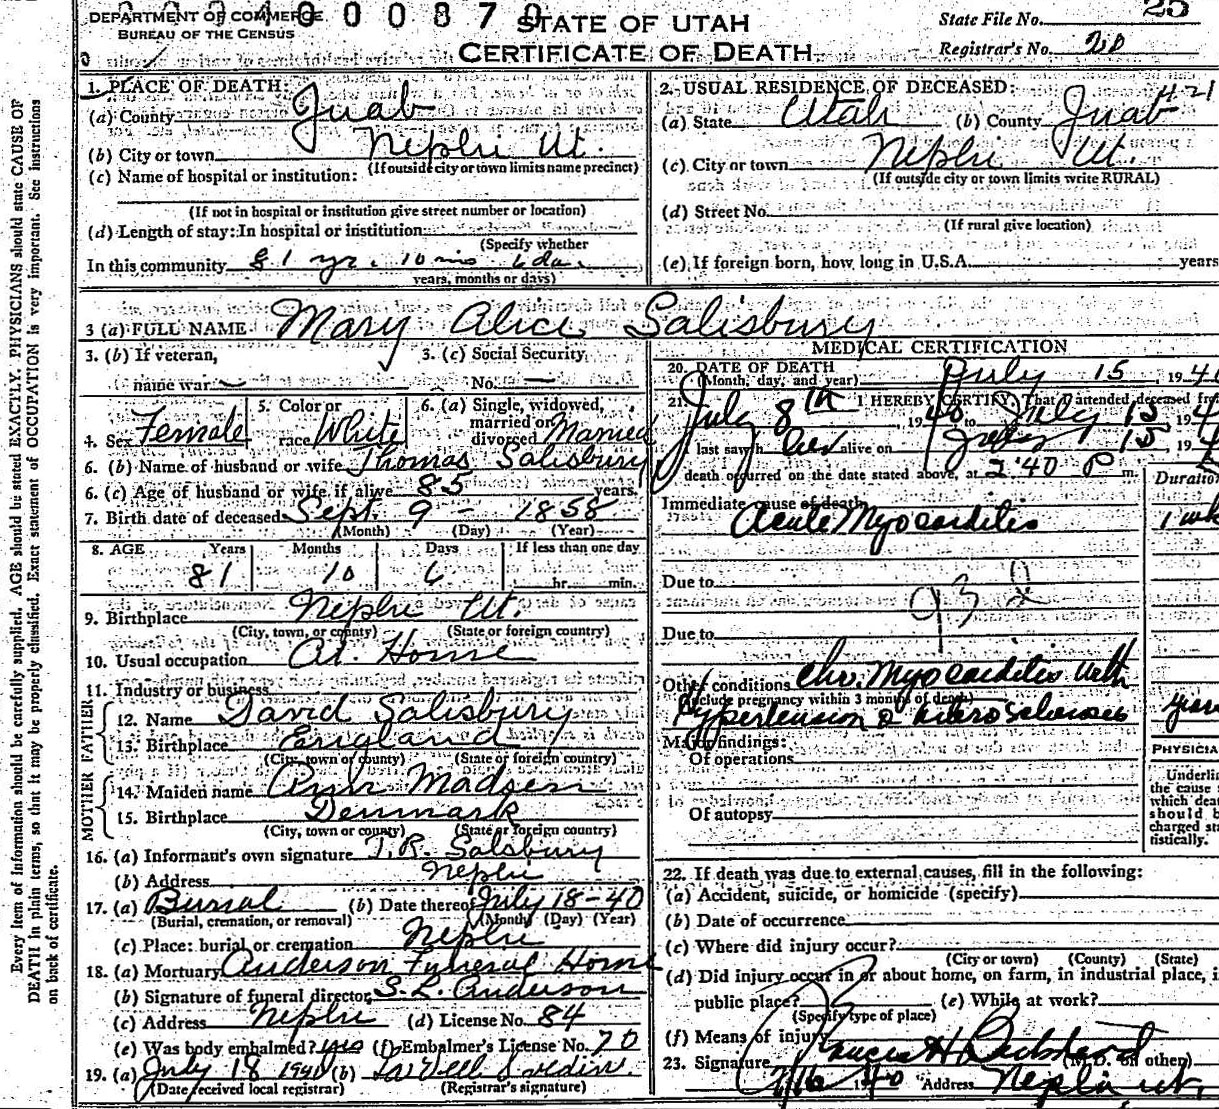 DEPARTMENT OF COMMERCE
BUREAU OF THE CENSUS
STATE OF UTAH
CERTIFICATE OF DEATH
State File No. 25
Registrar's No. 20
1. PLACE OF DEATH:
(a) County Juab
(b) City or town Nephi Ut.
(If outside city or town limits name precinct)
(c) Name of hospital or institution:
(If not in hospital or institution give street number or location)
(d) Length of stay: In hospital or institution
(Specify whether
In this community 81 yr. 10 mo 6 da.
years, months or days)
2. USUAL RESIDENCE OF DECEASED:
(a) State Utah (b) County Juab
(c) City or town Nephi Ut.
(If outside city or town limits write RURAL)
(d) Street No.
(If rural give location)
(e) If foreign born, how long in U.S.A. years
3 (a) FULL NAME Mary Alice Salisbury
3. (b) If veteran, name war —
3. (c) Social Security No. —
4. Sex Female
5. Color or race White
6. (a) Single, widowed, married or divorced Married
6. (b) Name of husband or wife Thomas Salisbury
6. (c) Age of husband or wife if alive 85 years.
7. Birth date of deceased Sept. 9 - 1858
(Month) (Day) (Year)
8. AGE Years Months Days If less than one day
81 10 6 hr. min.
9. Birthplace Nephi Ut.
(City, town, or county) (State or foreign country)
10. Usual occupation At Home
11. Industry or business
FATHER
12. Name David Salisbury
13. Birthplace England
(City, town or county) (State or foreign country)
MOTHER
14. Maiden name Ann Madsen
15. Birthplace Denmark
(City, town or county) (State or foreign country)
16. (a) Informant's own signature T.R. Salsbury
(b) Address Nephi
17. (a) Burial (b) Date thereof July 18-40
(Burial, cremation, or removal) (Month) (Day) (Year)
(c) Place: burial or cremation Nephi
18. (a) Mortuary Anderson Funeral Home
(b) Signature of funeral director S.L. Anderson
(c) Address Nephi (d) License No. 84
(e) Was body embalmed? yes (f) Embalmer's License No. 70
19. (a) July 18 1940 (b)
(Date received local registrar) (Registrar's signature)
MEDICAL CERTIFICATION
20. DATE OF DEATH
(Month, day, and year) July 15, 194
21. I HEREBY CERTIFY, That I attended deceased
July 8th, 1940 to July 15 194
last saw her alive on July 15, 194
death occurred on the date stated above, at 2:40 P m.
Duration
Immediate cause of death
Acute Myocarditis 1 wk
Due to
Due to
Other conditions Chr. Myocarditis with
(Include pregnancy within 3 months of death)
Hypertension & Arteriosclerosis
Major findings:
Of operations
Of autopsy
PHYSICIA
Underlin
the cause
which deat
should b
charged st
tistically.
22. If death was due to external causes, fill in the following:
(a) Accident, suicide, or homicide (specify)
(b) Date of occurrence
(c) Where did injury occur?
(City or town) (County) (State)
(d) Did injury occur in or about home, on farm, in industrial place, i
public place? (e) While at work?
(Specify type of place)
(f) Means of injury
23. Signature (M.D. or other)
7/16 1940 Address Nephi Ut.
Every item of information should be carefully supplied. AGE should be stated EXACTLY. PHYSICIANS should state CAUSE OF
DEATH in plain terms, so that it may be properly classified. Exact statement of OCCUPATION is very important. See instructions
on back of certificate.